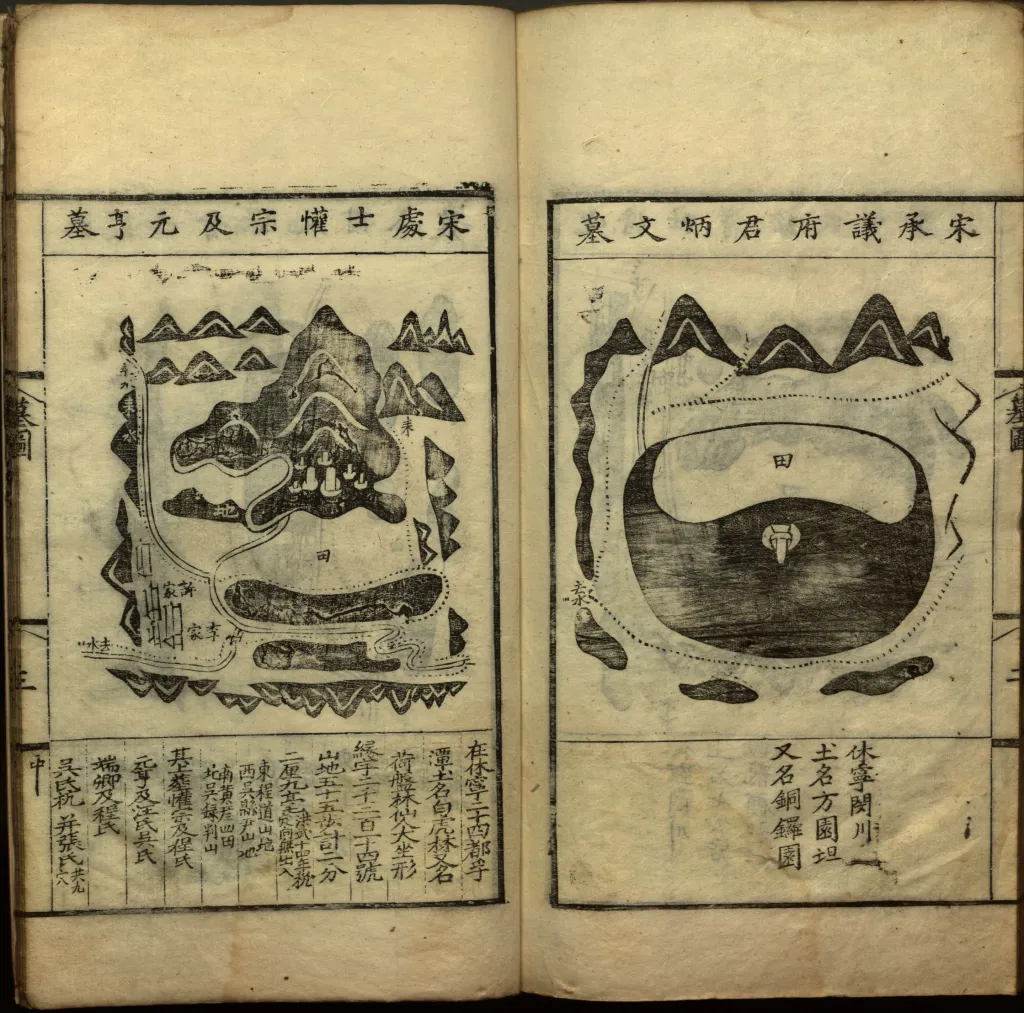 宋承議府君炳文墓
田
休寧閔川
土名方園坦
又名銅鑼園
墓圖
宋處士懽宗及元亨墓
來
地
田
家
李家
去水
在休寧二十四都孚
潭土名白虎林又名
荷盤林仙人坐形
山地五十五步計二分
二厘九毛
東程道山地
西吳縣尹山地
南黃彦四田
北吳錄判山
其上葬懽宗及程氏
元亨及汪氏吳氏
端卿及程氏
吳氏杭并張氏共九穴
墓圖
三